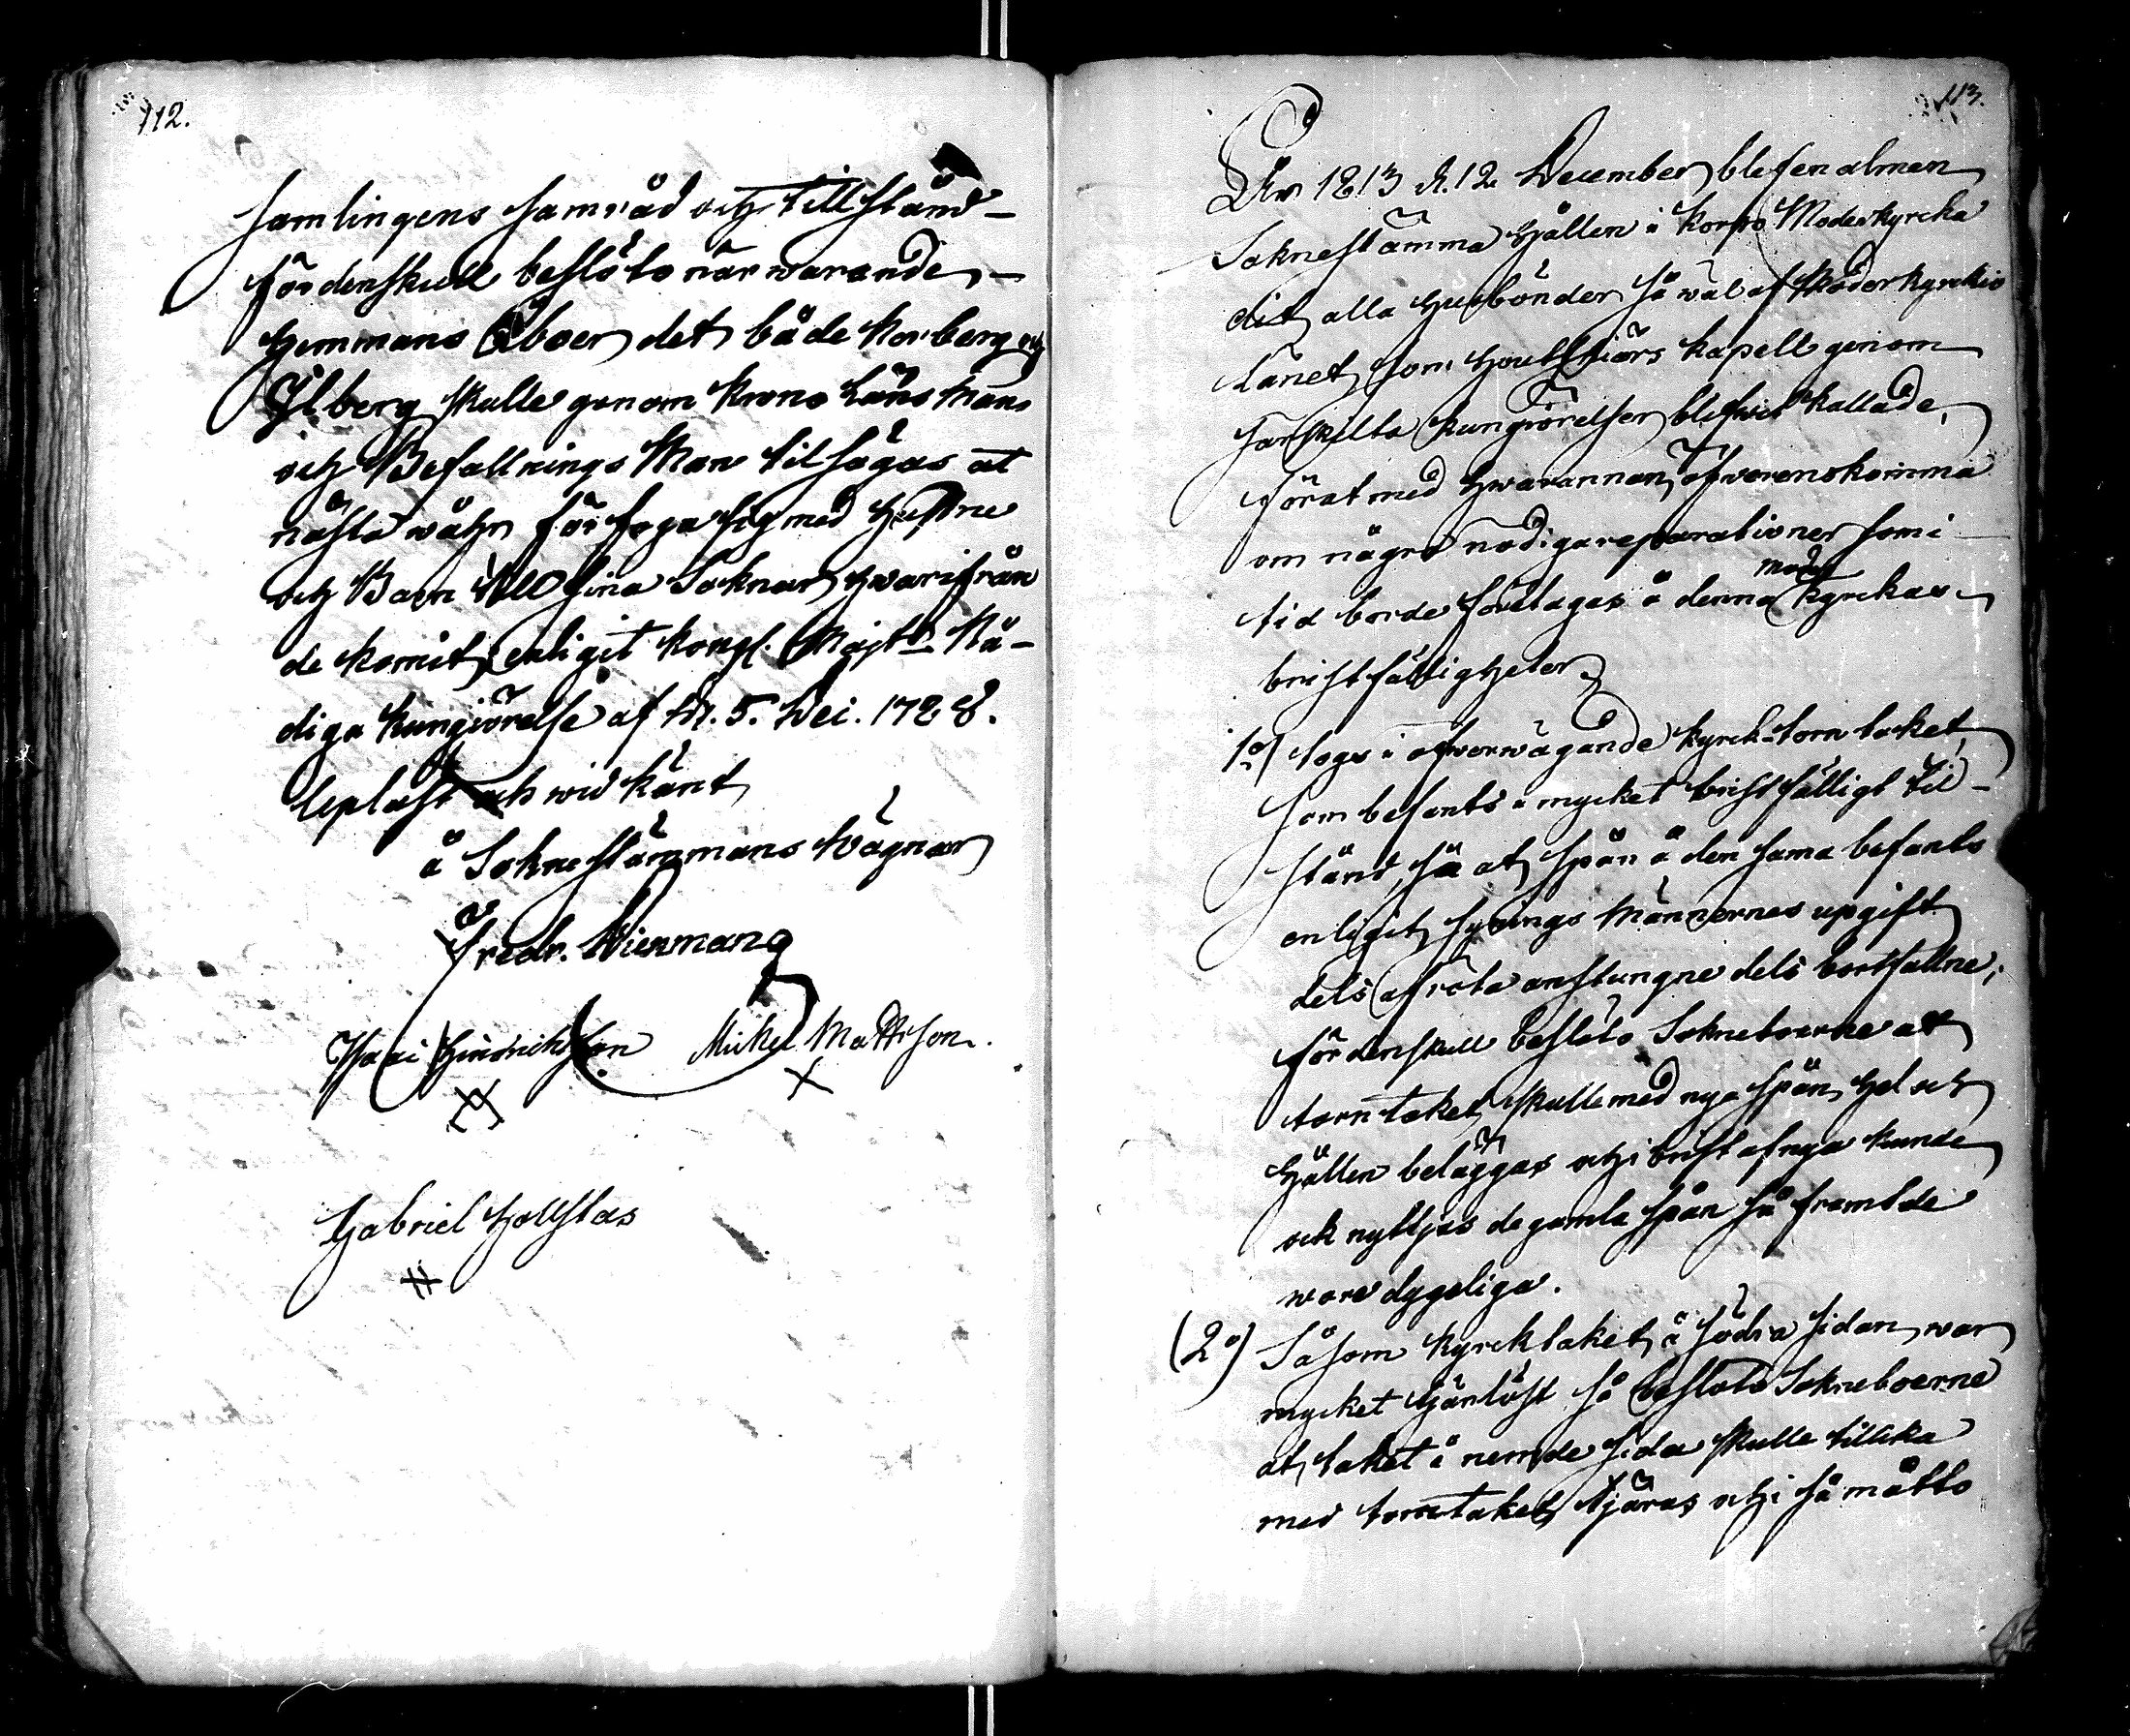 112.
samlingens samråd och tillstånd –
fördenskull beslöto närwarande –
Hemmans Åboer det både Korberg och
Ylberg skulle genom Krono Läns Man
och Befallnings Man tilsägas at
nästa wåhr förfoga sig med Hustru
och Barn till sina Soknar hwarifrån
de komit, enligit Kongl. Majts Nå-
diga Kungiörelse af d. 5. Dec. 1728.
Uplast och widkänt
å Soknestämmans Wägnar
Fredr. Wienmang
Isaac Hindrichsson Mickel Mattsson.
Gabriel Hollstas
113.
År 1813 d. 12 December blef en almen
Soknestämma hållen i Korpo Moderkyrcka
dit alla Husbönder så wäl af Moderkyrckio
Länet som Houtskiärs Kapell genom
särskilta kungiörelser blifwit kallade,
för at med hwarannan öfwerenskomma
om några nödiga reparationer som i
tid borde företagas å denna moder kyrckas
bristfälligheter
1o) togs i öfwerwägande kyrck-torn taket,
som befants i mycket bristfälligt til-
stånd, så at spån å den sama befants
enligit syningsmännernes upgift
dels af röta anstungne dels bortfallne;
fördenskull beslöto Sokneboerne at
torntaket skulle med nya spån hel och
hållen beläggas och i brist af nya kunde
ock nyttjas de gamla spån så framt de
wore dygeliga.
(2o) Såsom kyrcktaket å södra sidan war
mycket tjärlöst så beslöto Sokneboerne
at taket å nemde sida skulle tillika
med torntaket tjäras och i så måtto